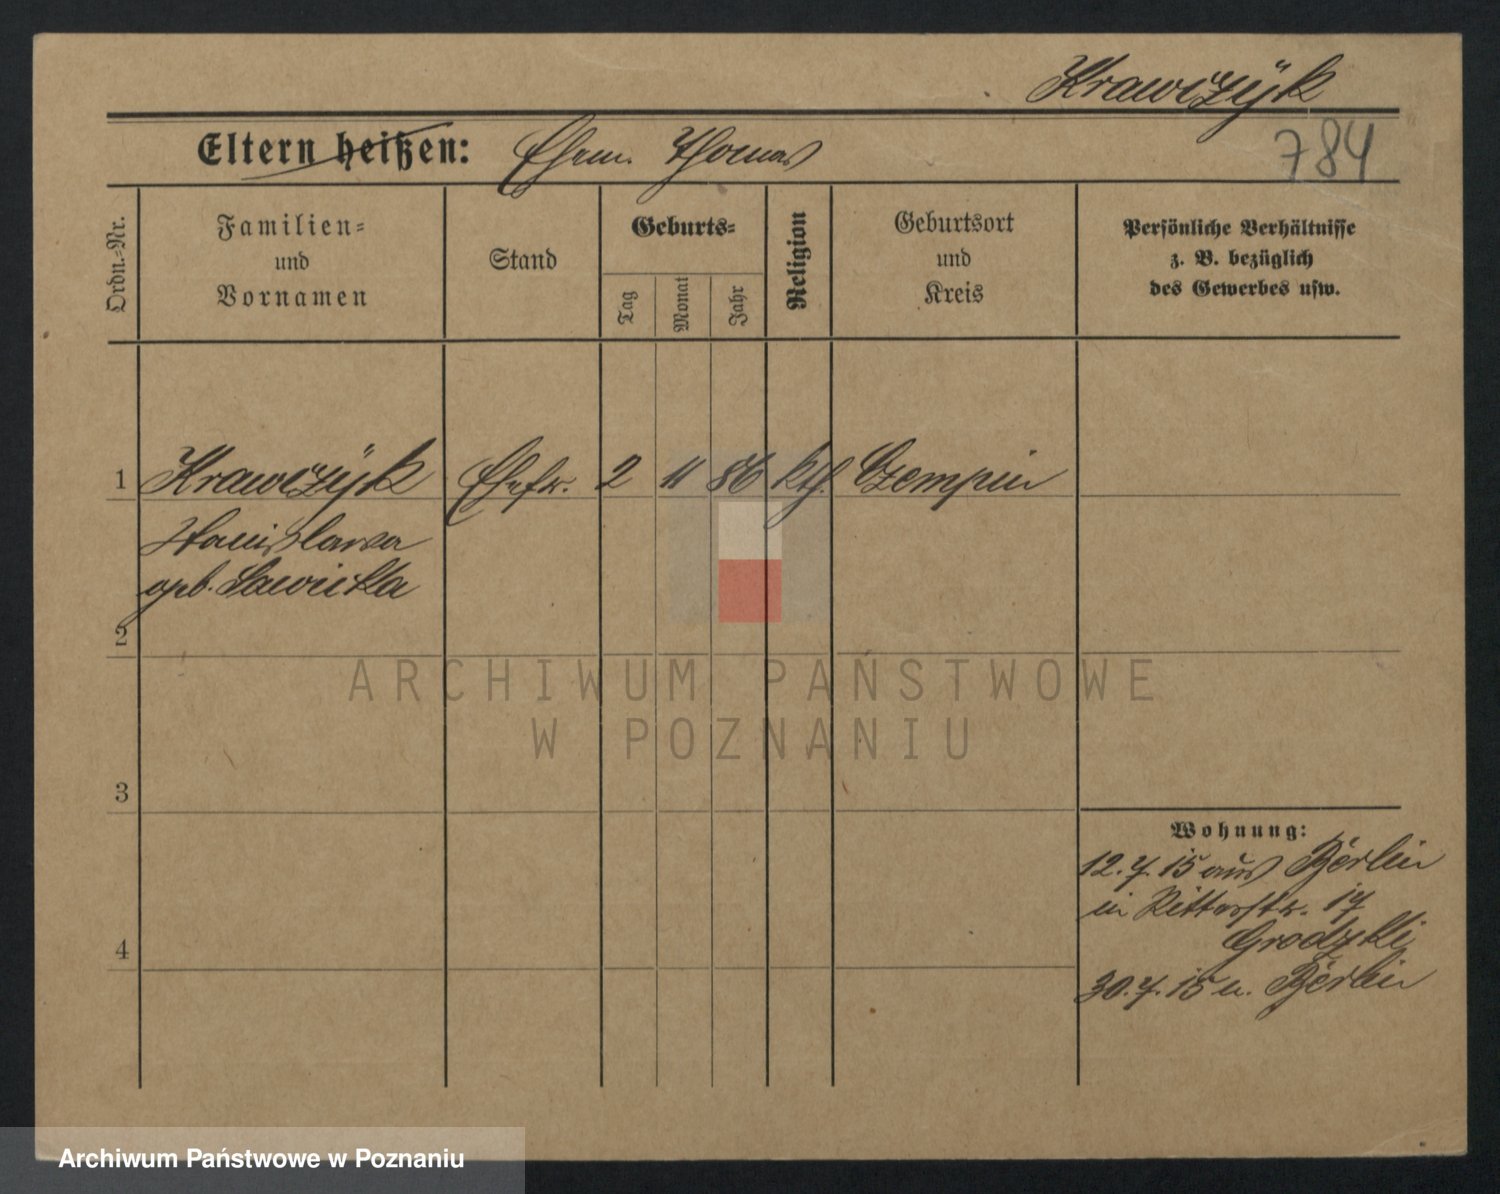 Krawczÿk
Eltern heißen: Ehem. Thomas
784
Ordn.-Nr.
Familien-
und
Vornamen
Stand
Geburts-
Tag
Monat
Jahr
Religion
Geburtsort
und
Kreis
Persönliche Verhältnisse
z. B. bezüglich
des Gewerbes usw.
1 Krawczÿk Ehefr. 2 11 86 kth. Czempin
Stanislawa
geb. Sawicka
2
ARCHIWUM PAŃSTWOWE
W POZNANIU
3
Wohnung:
12.7.15 aus Berlin
in Ritterstr. 17
Grodzki
4
30.7.15 n. Berlin
Archiwum Państwowe w Poznaniu